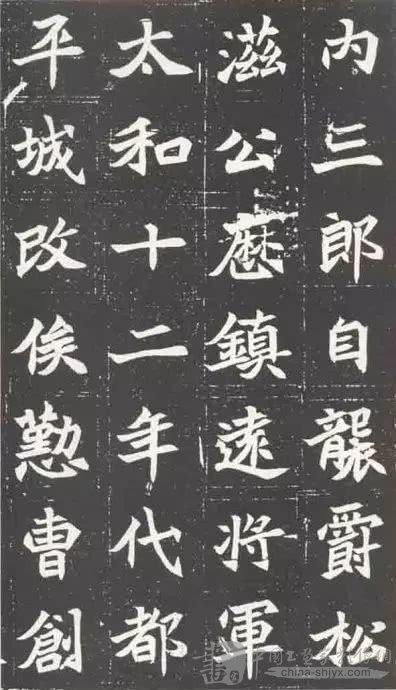 内三郎自襲爵松
滋公歷鎮遠将軍
太和十二年代都
平城改俟懃曹創
china-shiyx.com